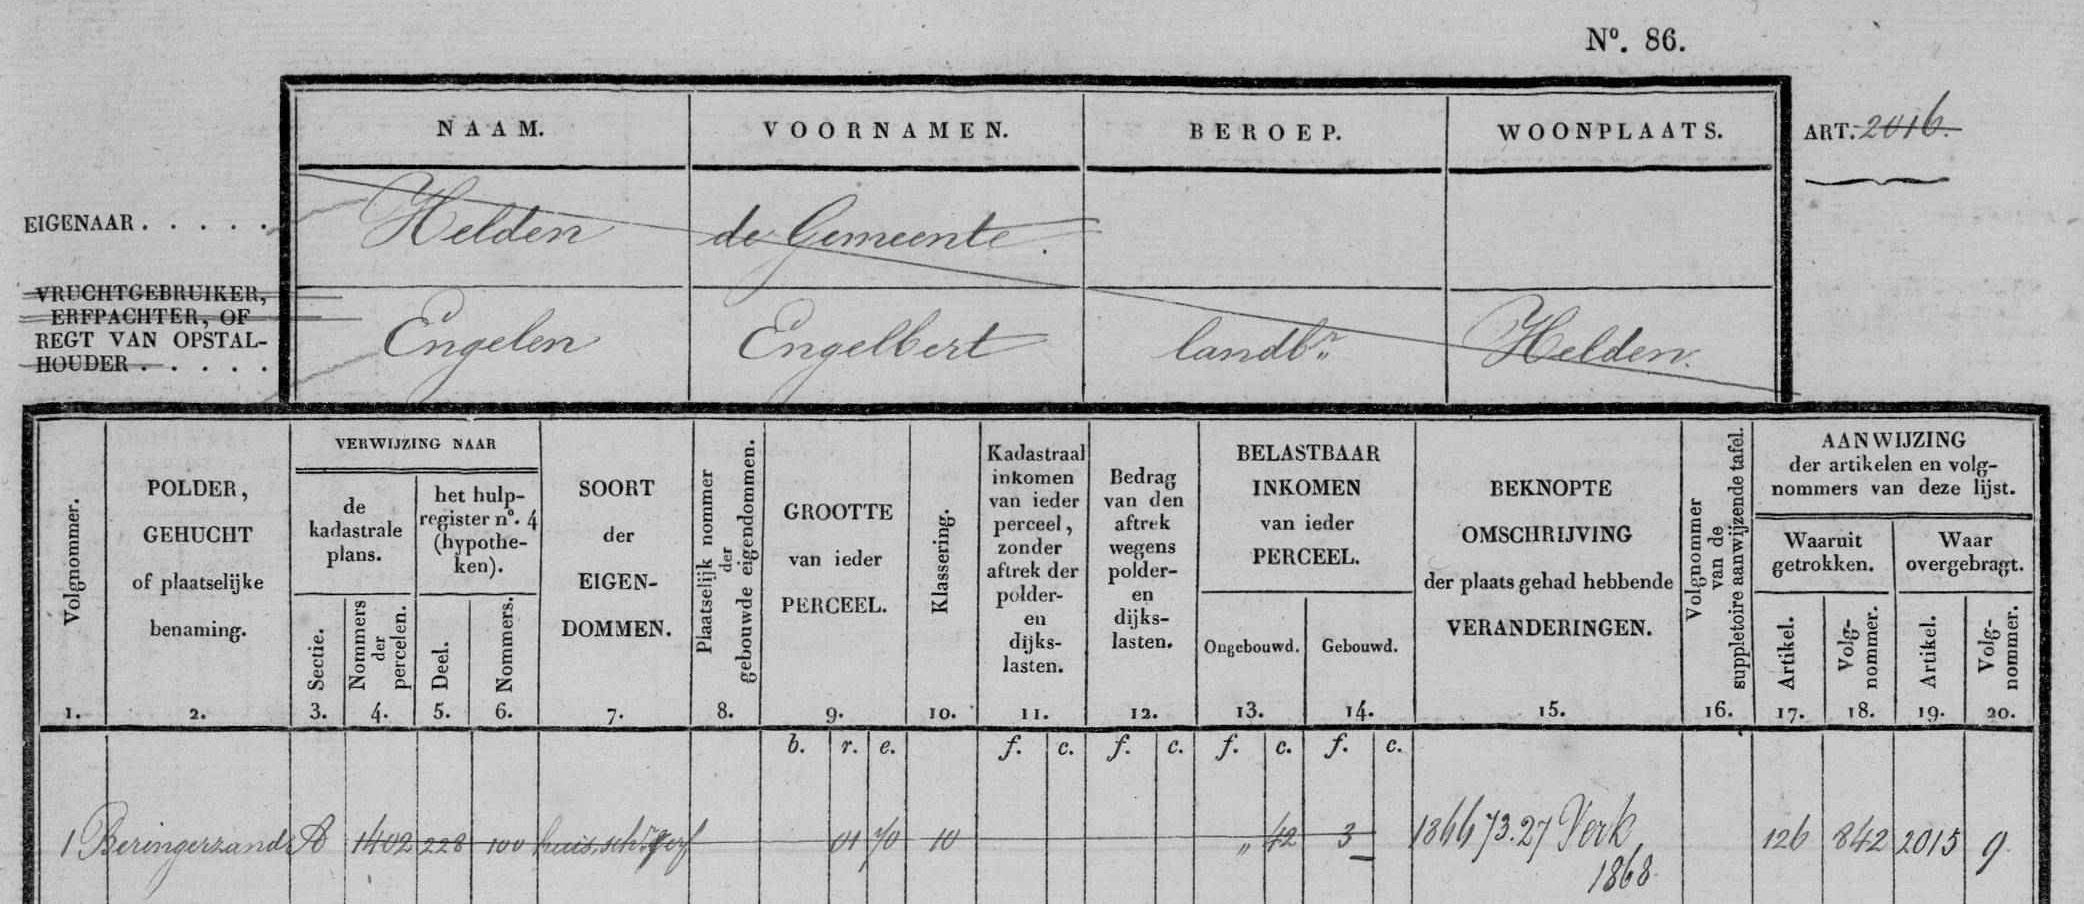 Nº. 86.
NAAM. VOORNAMEN. BEROEP. WOONPLAATS. ART. 2016.
EIGENAAR . . . . . Helden de Gemeente.
VRUCHTGEBRUIKER,
ERFPACHTER, OF
REGT VAN OPSTAL-
HOUDER . . . . . Engelen Engelbert landbr. Helden.
Volgnommer.
1.
POLDER,
GEHUCHT
of plaatselijke
benaming.
2.
VERWIJZING NAAR
de
kadastrale
plans.
Sectie.
3.
Nommers
der
percelen.
4.
het hulp-
register nº. 4
(hypothe-
ken).
Deel.
5.
Nommers.
6.
SOORT
der
EIGEN-
DOMMEN.
7.
Plaatselijk nommer
der
gebouwde eigendommen.
8.
GROOTTE
van ieder
PERCEEL.
9.
Klassering.
10.
Kadastraal
inkomen
van ieder
perceel,
zonder
aftrek der
polder-
en
dijks-
lasten.
11.
Bedrag
van den
aftrek
wegens
polder-
en
dijks-
lasten.
12.
BELASTBAAR
INKOMEN
van ieder
PERCEEL.
Ongebouwd.
13.
Gebouwd.
14.
BEKNOPTE
OMSCHRIJVING
der plaats gehad hebbende
VERANDERINGEN.
15.
Volgnommer
van de
suppletoire aanwijzende tafel.
16.
AANWIJZING
der artikelen en volg-
nommers van deze lijst.
Waaruit
getrokken.
Artikel.
17.
Volg-
nommer.
18.
Waar
overgebragt.
Artikel.
19.
Volg-
nommer.
20.
b. r. e. f. c. f. c. f. c. f. c.
1 Beringerzand A 1402 228 100 huis, sch. erf 01 70 10 „ 42 3 – 1866 73.27 Verk 126 842 2015 9
1868